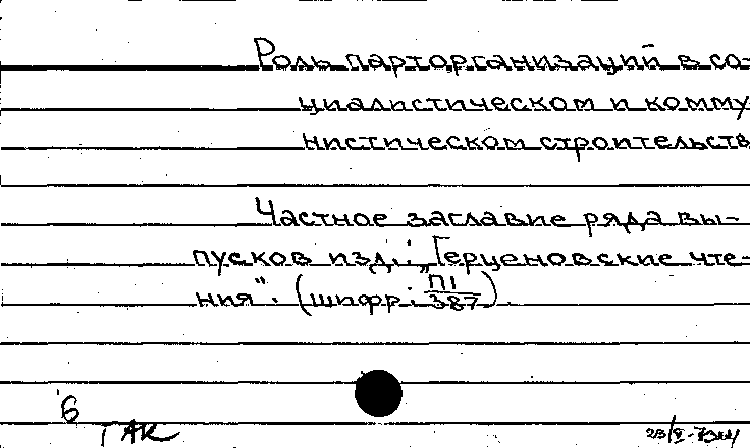 Роль парторганизаций в со-
циалистическом и комму
нистическом строительств
Частное заглавие ряда вы-
пусков изд.: „Герценовские чте-
ния". (шифр: П1/387).
6
ГАК